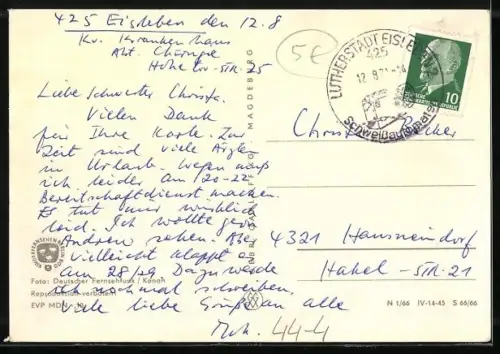 425 Eisleben den 12.8
Kr. Krankenhaus
Abt. Chirurgie
Hohetor-Str. 25
5€
LUTHERSTADT EISLEBEN
425
12.8.71-14
10
Liebe Schwester Christa.
Vielen Dank
für Ihre Karte. Zur
Zeit sind viele Ärzte
in Urlaub. Wegen
ich leider am 20-22
Bereitschaftsdienst machen.
Es tut mir wirklich
leid. Ich wollte gern
Andrea sehen. Aber
vielleicht klappt es
am 28/29. Dazu werde
ich nochmal schreiben.
Viele liebe Grüße an alle
Christa
4321 Hausneindorf
Hakel-Str. 21
MAGDEBURG
Foto: Deutscher Fernsehfunk / Kanah
Reproduktion verboten
EVP MDN
N 1/66 IV-14-45 S 66/66
44-4